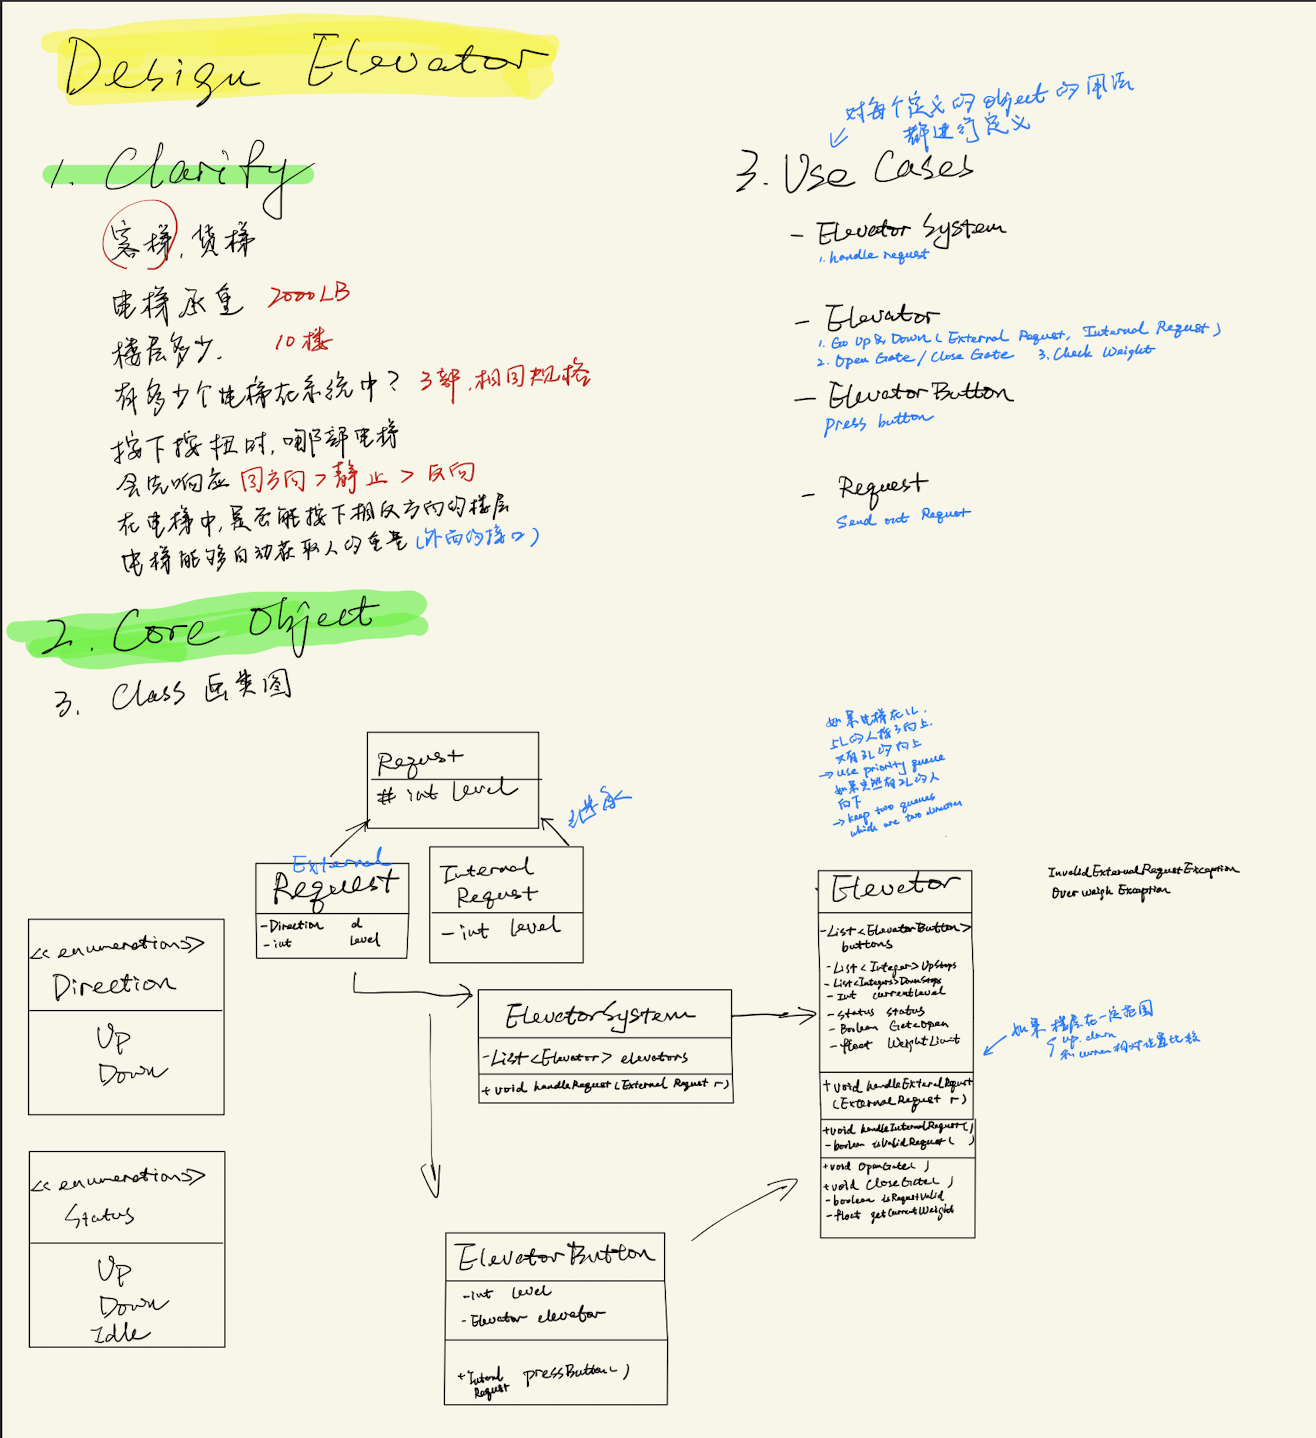 Design Elevator
1. Clarify
客梯, 货梯
电梯承重 2000LB
楼层多少. 10楼
有多少个电梯在系统中? 3部, 相同规格
按下按钮时, 哪部电梯
会先响应 同方向 > 静止 > 反向
在电梯中, 是否能按下相反方向的楼层
电梯能够自动获取人的重量 (外面的接口)
对每个定义的object的用法
都进行定义
3. Use Cases
- Elevator System
1. handle request
- Elevator
1. Go Up & Down ( External Request, Internal Request )
2. Open Gate / Close Gate 3. Check Weight
- ElevatorButton
Press button
- Request
Send out Request
2. Core Object
3. Class 画类图
Request
# int Level
继承
External
Request
- Direction d
- int level
Internal
Request
- int level
<< enumerations >>
Direction
Up
Down
<< enumerations >>
Status
Up
Down
Idle
ElevatorSystem
- List <Elevator> elevators
+ void handleRequest ( External Request r )
ElevatorButton
- int level
- Elevator elevator
+ Internal
Request pressButton( )
如果电梯在1L.
5L的人按了向上.
又有3L的向上
→ use priority queue
如果突然有2L的人
向下
→ keep two queues
which are two direction
Elevator
- List <ElevatorButton>
buttons
- List <Integer> UpStops
- List <Integers> DownStops
- Int currentLevel
- Status status
- Boolean GateOpen
- float WeightLimit
+ void handleExternalRequest
( ExternalRequest r )
+ void handleInternalRequest( )
- boolean isValidRequest ( )
+ void OpenGate( )
+ void CloseGate( )
- boolean isRequestValid
- float getCurrentWeight
InvalidExternalRequestException
Over weigh Exception
如果楼层在一定范围
up. down
和 curren 相对位置比较